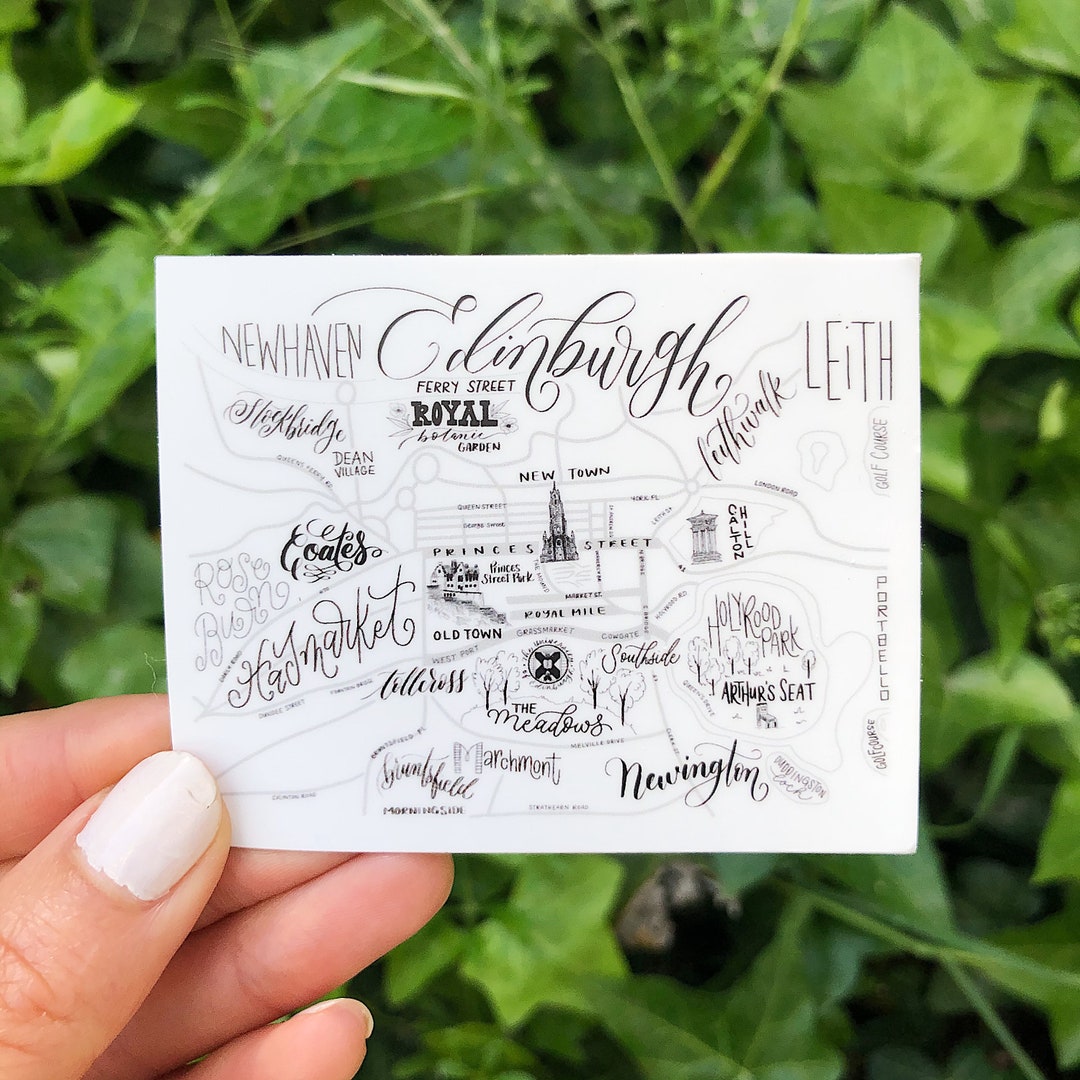 Edinburgh
NEWHAVEN
LEiTH
FERRY STREET
ROYAL
botanic
GARDEN
Stockbridge
leithwalk
GOLF COURSE
DEAN
VILLAGE
QUEENS FERRY RD
NEW TOWN
LONDON ROAD
YORK PL
QUEEN STREET
George Street
CALTON
HILL
Coates
PRINCES STREET
Princes
Street Park
PORTBELLO
Rose
Burn
Haymarket
MARKET ST.
ROYAL MILE
HOLYROOD RD
HOLYROOD
PARK
OLD TOWN
GRASSMARKET
COWGATE
WEST PORT
Southside
tollcross
ARTHUR'S SEAT
QUEENS DRIVE
DUNDEE STREET
THE
Meadows
MELVILLE DRIVE
GOLF COURSE
Bruntsfield
Marchmont
Newington
DUDDINGSTON
Lock
MORNINGSIDE
STRATHEARN ROAD